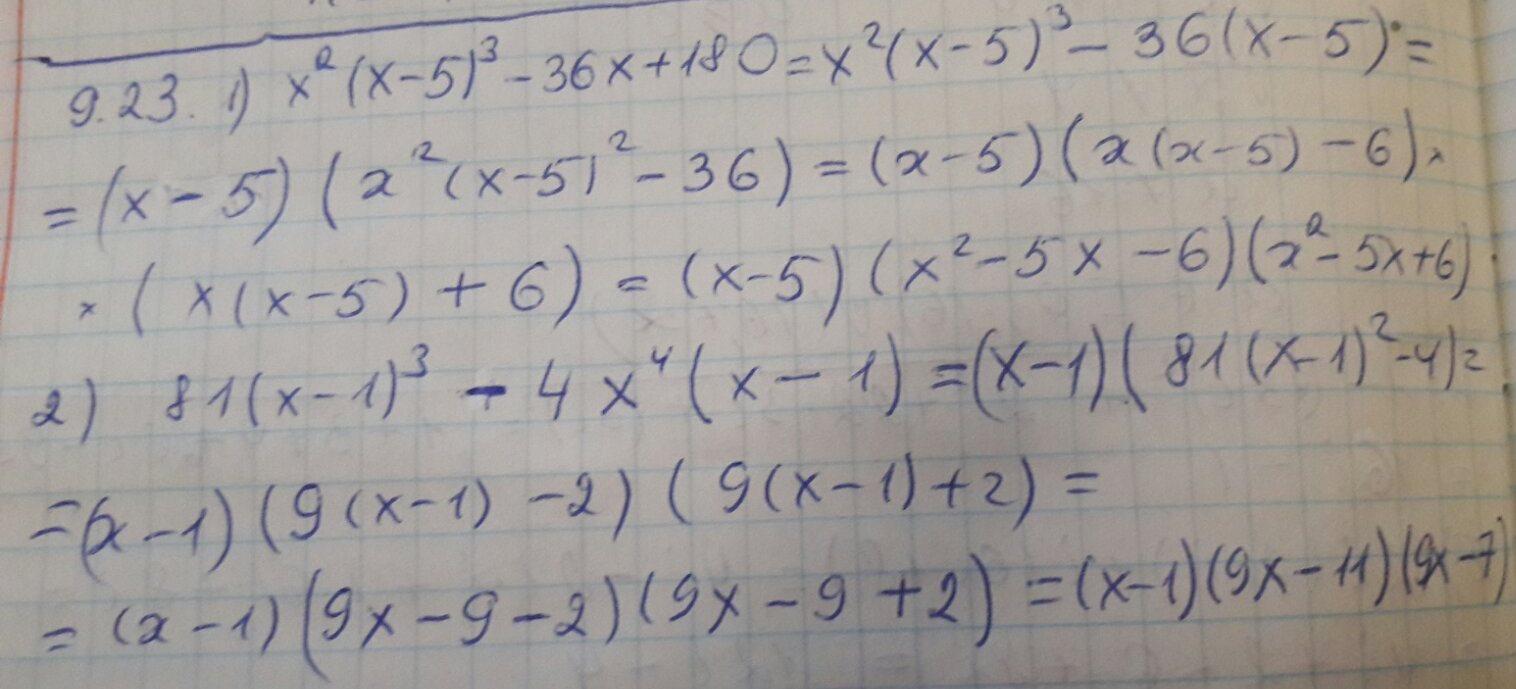 9.23. 1) x²(x-5)³-36x+180=x²(x-5)³-36(x-5)=
=(x-5)(x²(x-5)²-36)=(x-5)(x(x-5)-6)×
×(x(x-5)+6)=(x-5)(x²-5x-6)(x²-5x+6)
2) 81(x-1)³-4x⁴(x-1)=(x-1)(81(x-1)²-4)=
=(x-1)(9(x-1)-2)(9(x-1)+2)=
=(x-1)(9x-9-2)(9x-9+2)=(x-1)(9x-11)(9x-7)